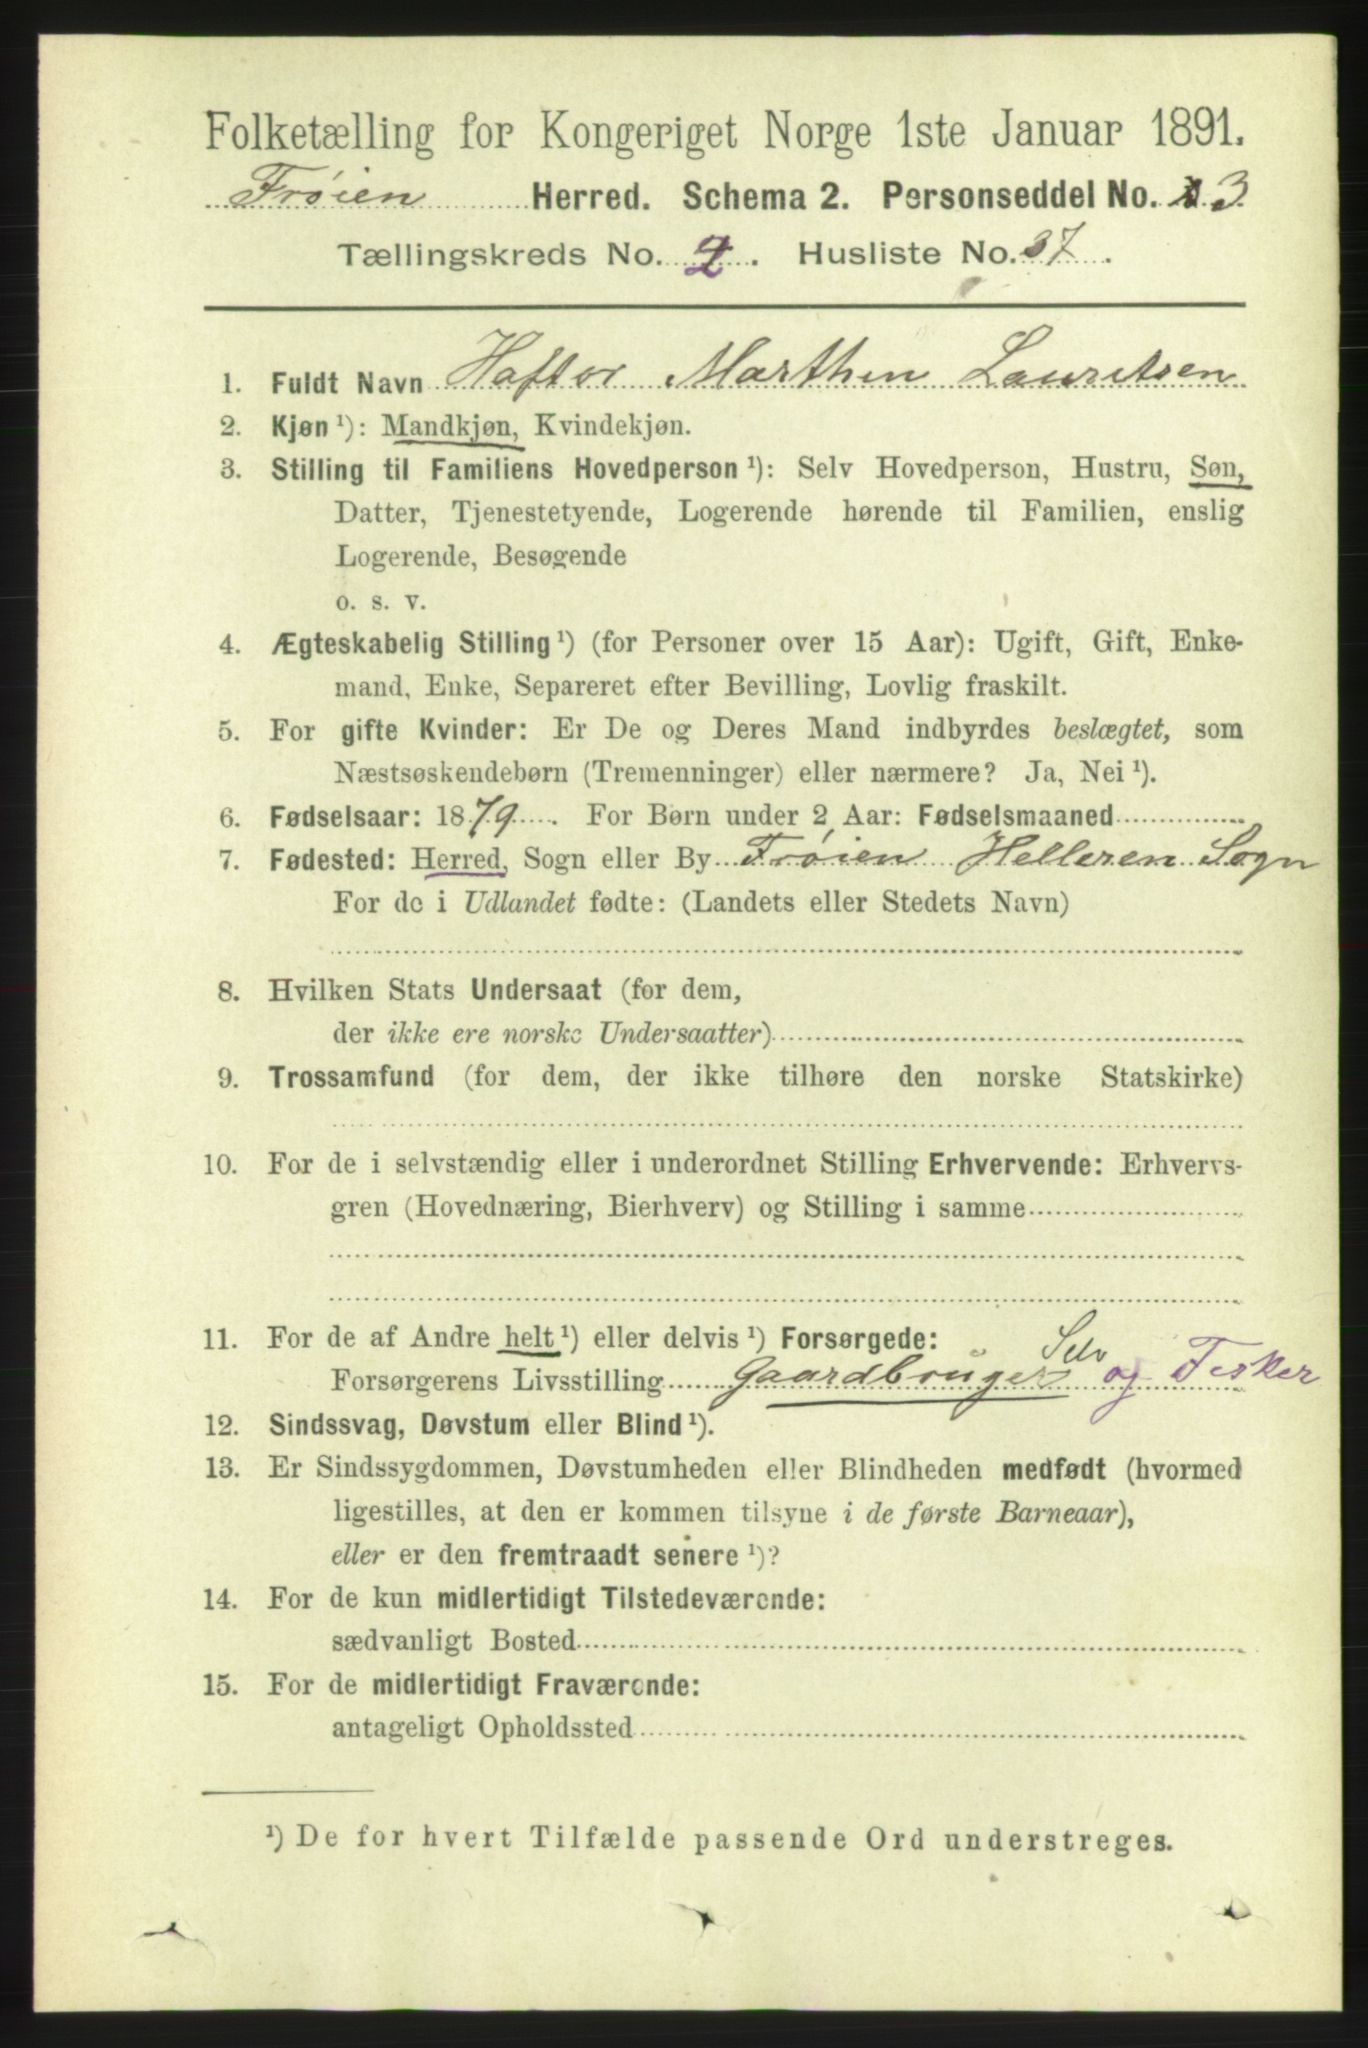 Folketælling for Kongeriget Norge 1ste Januar 1891.
Frøien Herred. Schema 2. Personseddel No. 3
Tællingskreds No. 2. Husliste No. 37.
1. Fuldt Navn Haftor Marthin Lauritsen
2. Kjøn ¹): Mandkjøn, Kvindekjøn.
3. Stilling til Familiens Hovedperson ¹): Selv Hovedperson, Hustru, Søn,
Datter, Tjenestetyende, Logerende hørende til Familien, enslig
Logerende, Besøgende
o. s. v.
4. Ægteskabelig Stilling ¹) (for Personer over 15 Aar): Ugift, Gift, Enke-
mand, Enke, Separeret efter Bevilling, Lovlig fraskilt.
5. For gifte Kvinder: Er De og Deres Mand indbyrdes beslægtet, som
Næstsøskendebørn (Tremenninger) eller nærmere? Ja, Nei ¹).
6. Fødselsaar: 1879. For Børn under 2 Aar: Fødselsmaaned
7. Fødested: Herred, Sogn eller By Frøien Helleren Sogn
For de i Udlandet fødte: (Landets eller Stedets Navn)
8. Hvilken Stats Undersaat (for dem,
der ikke ere norske Undersaatter)
9. Trossamfund (for dem, der ikke tilhøre den norske Statskirke)
10. For de i selvstændig eller i underordnet Stilling Erhvervende: Erhvervs-
gren (Hovednæring, Bierhverv) og Stilling i samme
11. For de af Andre helt ¹) eller delvis ¹) Forsørgede:
Forsørgerens Livsstilling Gaardbruger Selv og Fisker
12. Sindssvag, Døvstum eller Blind ¹).
13. Er Sindssygdommen, Døvstumheden eller Blindheden medfødt (hvormed
ligestilles, at den er kommen tilsyne i de første Barneaar),
eller er den fremtraadt senere ¹)?
14. For de kun midlertidigt Tilstedeværende:
sædvanligt Bosted
15. For de midlertidigt Fraværende:
antageligt Opholdssted
¹) De for hvert Tilfælde passende Ord understreges.